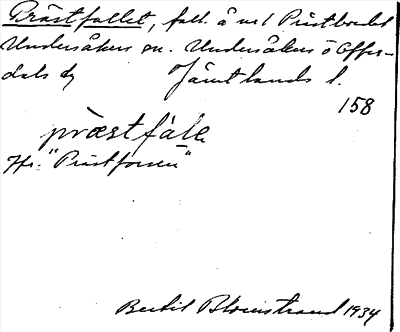 Prästfallet, fall. å vid Prästbordet
Undersåkers sn. Undersåkers o Offer-
dals tg Jämtlands l.
158
præstfálɛ
Jfr. "Prästforsen"
Bertil Blomstrand 1934